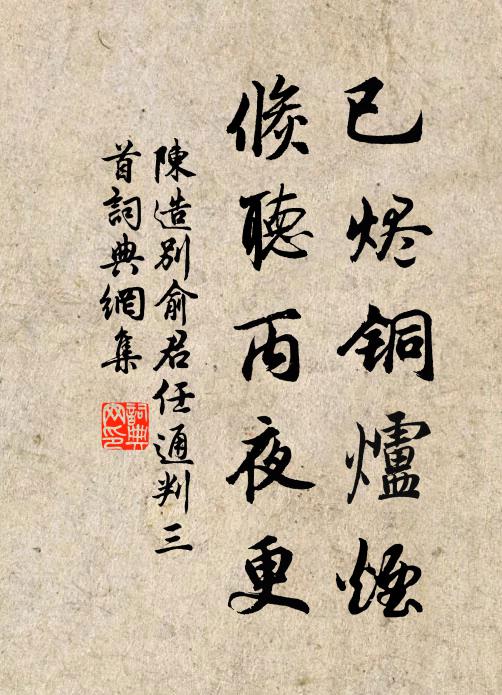 已烬铜爐煙
倐聽丙夜更
陳造別俞君任通判三
首詞典網集
詞典
网印